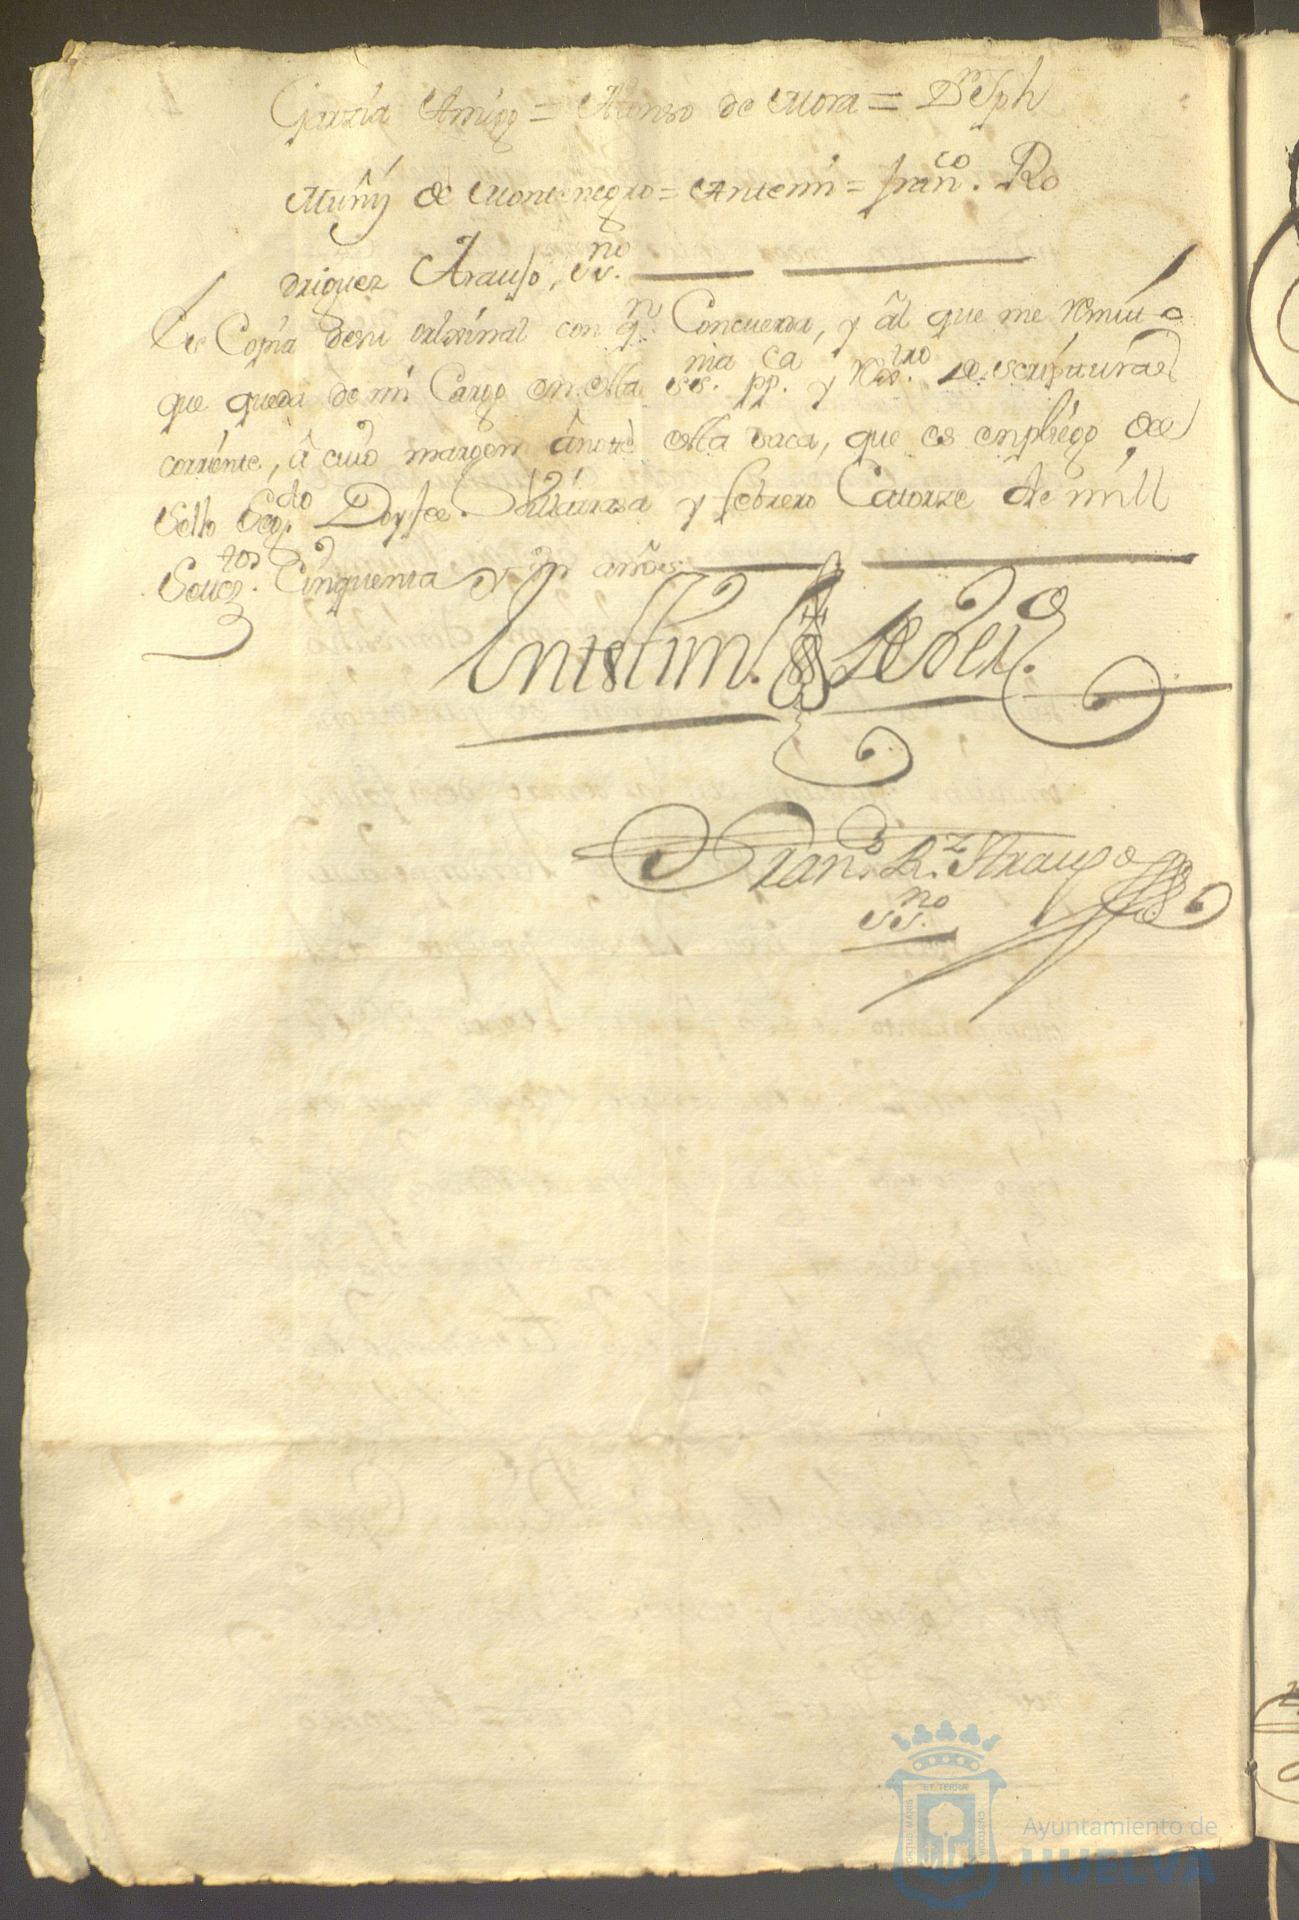 Garzia Amigo = Alonso de Mora = Dn. Jph
Muñ̃ de Montenegro = Antemi = Fran.co Ro
driguez Araujo, ss.no
Es Copia desu orixinal con q.n Concuerda, y âl que me Remito
que queda de mi Cargo en esta ss.nia pp.ca y Rex.tro de escripturas
corriente, â cuio margen ânoté esta saca, que es enpliego del
Sello Seg.do Doy fee. Villarrasa y febrero Catorze de mill
Setez.tos Cinquenta y Un años
Entestim.o de Verd.
Fran.co R.z Araujo
ss.no
ET TERRÆ
PORTUS MARIS
CUSTODIA
Ayuntamiento de
HUELVA